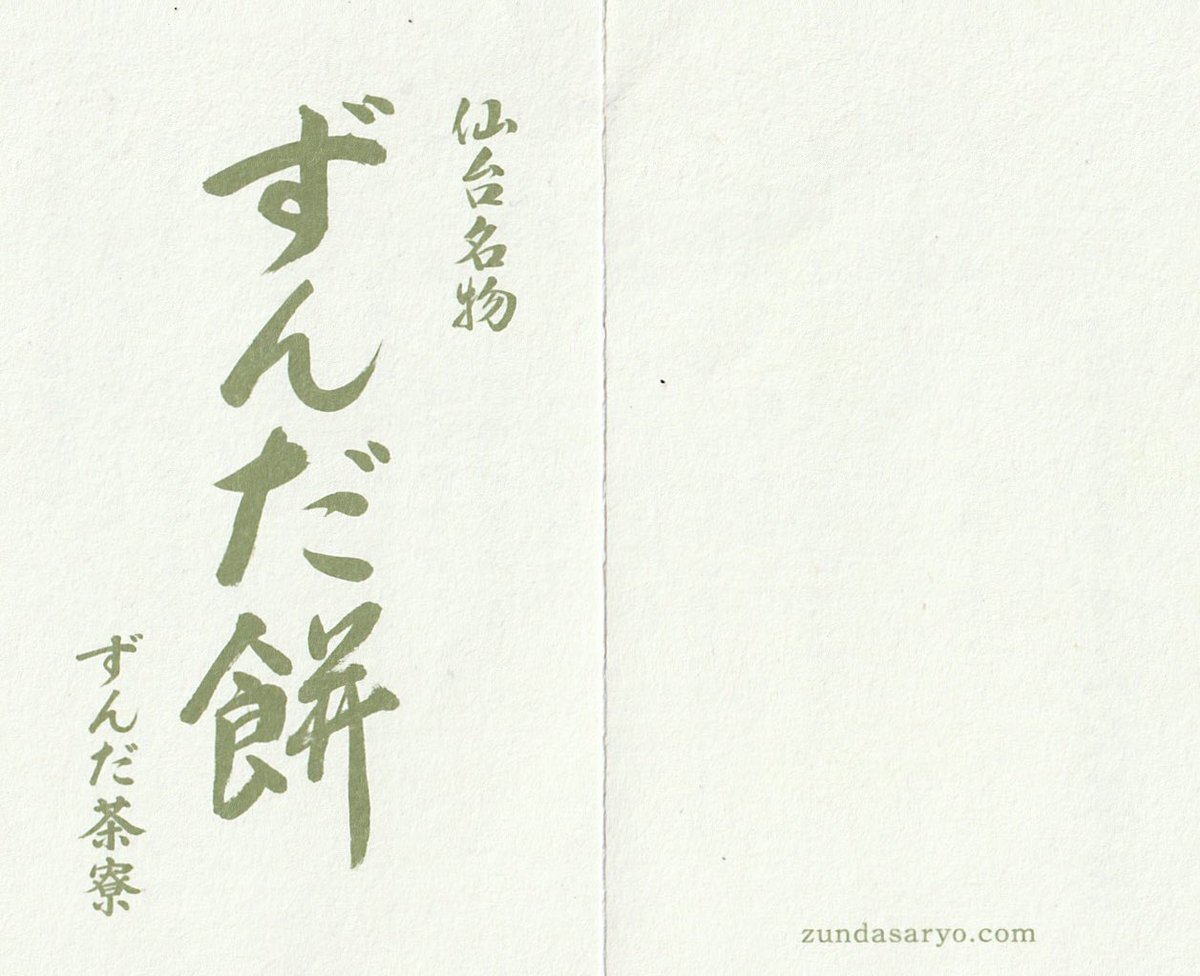 仙台名物
ずんだ餅
ずんだ茶寮
zundasaryo.com